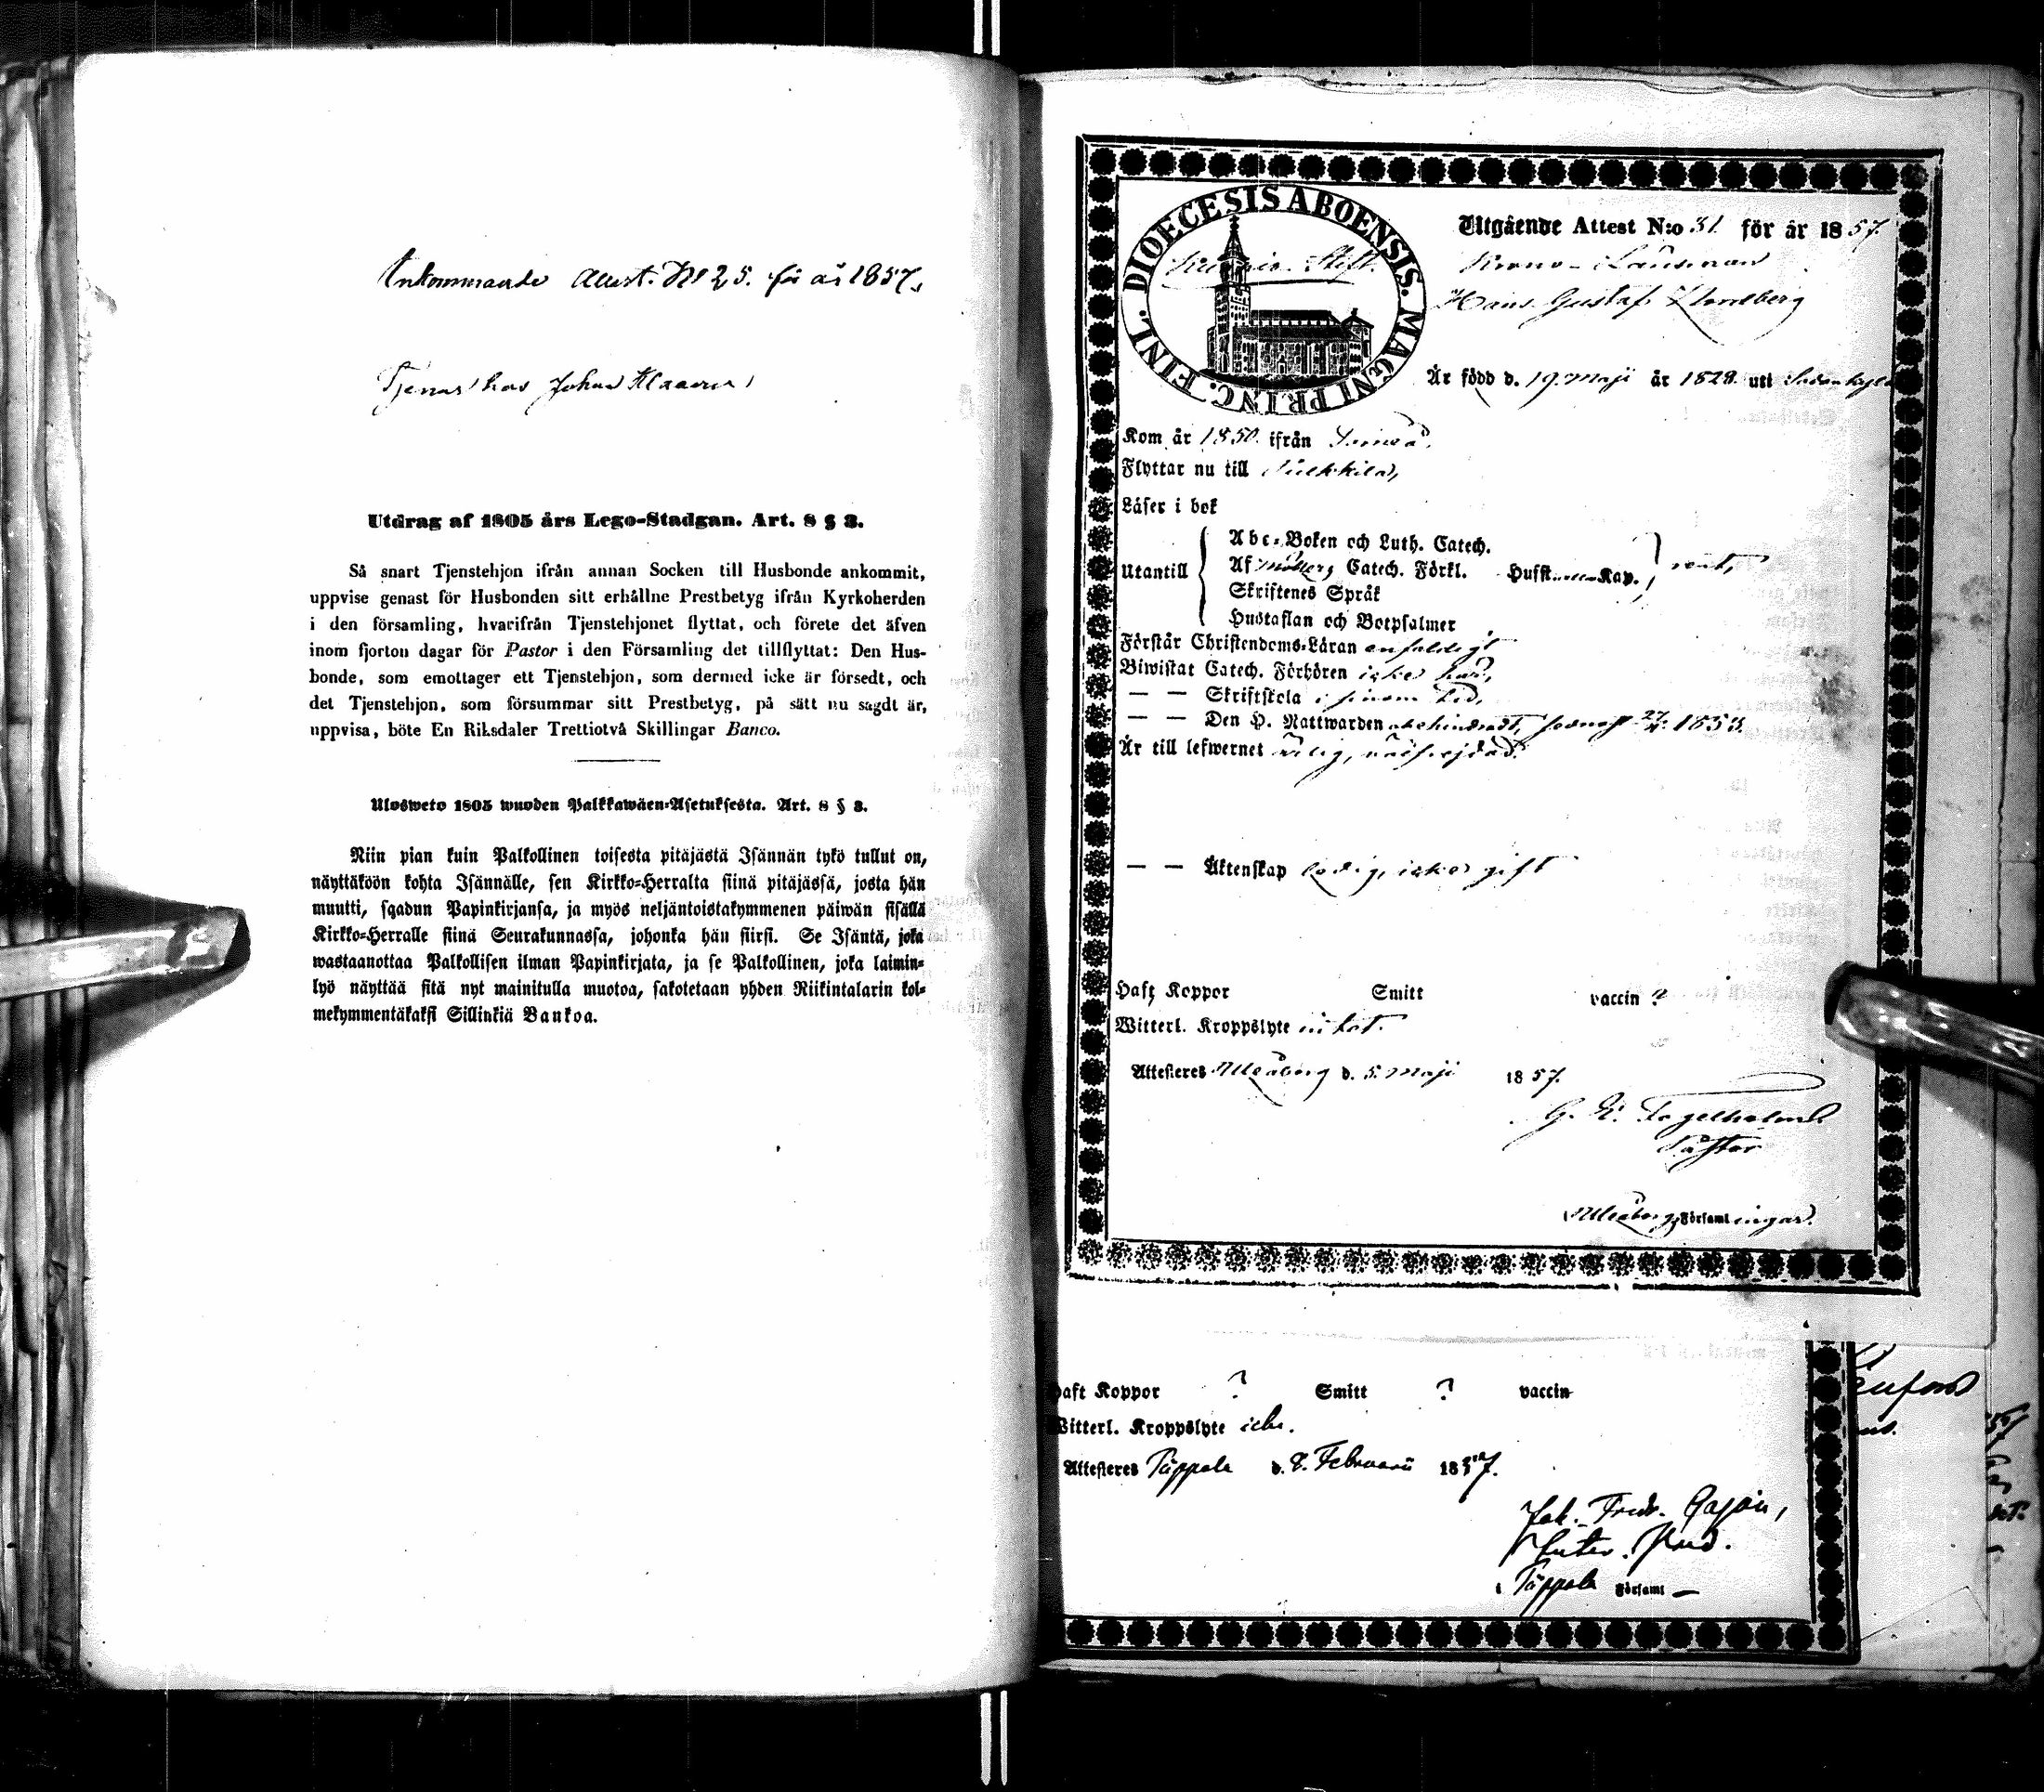 Inkommande Attest. No 25. för år 1857.
Tjenar hos Johan
Utdrag af 1805 års Lego-Stadgan. Art. 8 § 3.
Så snart Tjenstehjon ifrån annan Socken till Husbonde ankommit,
uppvise genast för Husbonden sitt erhållne Prestbetyg ifrån Kyrkoherden
i den församling, hvarifrån Tjenstehjonet flyttat, och förete det äfven
inom fjorton dagar för Pastor i den Församling det tillflyttat: Den Hus-
bonde, som emottager ett Tjenstehjon, som dermed icke är försedt, och
det Tjenstehjon, som försummar sitt Prestbetyg, på sätt nu sagdt är,
uppvisa, böte En Riksdaler Trettiotvå Skillingar Banco.
Ulosweto 1805 wuoden Palkkawäen-Asetuksesta. Art. 8 § 3.
Niin pian kuin Palkollinen toisesta pitäjästä Isännän tykö tullut on,
näyttäköön kohta Isännälle, sen Kirkko-Herralta siinä pitäjässä, josta hän
muutti, saadun Papinkirjansa, ja myös neljäntoistakymmenen päiwän sisällä
Kirkko-Herralle siinä Seurakunnassa, johonka hän siirsi. Se Isäntä, joka
wastaanottaa Palkollisen ilman Papinkirjata, ja se Palkollinen, joka laimin-
lyö näyttää sitä nyt mainitulla muotoa, sakotetaan yhden Riikintalarin kol-
mekymmentäkaksi Sillinkiä Bankoa.
DIOECESIS ABOENSIS. MAGNI PRINC. FINL.
Kuopio Stift.
Utgående Attest N:o 31 för år 1857.
Krono-Länsman
Hans Gustaf
Är född d. 19 Maji år 1828. uti
Kom år 1850 ifrån
Flyttar nu till
Läser i bok
Abc-Boken och Luth. Catech.
Utantill Af Möllers Catech. Förkl. Kap.
Skriftenes Språk
Hustaflan och Botpsalmer
Förstår Christendoms-Läran enfaldigt
Biwistat Catech. Förhören icke här,
— — Skriftskola i sinom tid,
— — Den H. Nattwarden obehindradt, 1853.
Är till lefwernet ärlig, välfrejdad.
— — Äktenskap ledig, icke gift
Haft Koppor Smitt vaccin ?
Witterl. Kroppslyte
Attesteres Uleåborg d. 5. Maji 1857.
Pastor
Uleåborgs Församlingar.
Haft Koppor ? Smitt ? vaccin
Witterl. Kroppslyte icke.
Attesteres Pippola d. 8. Februarii 1857.
Joh. Fredr.
i Pippola Församl —